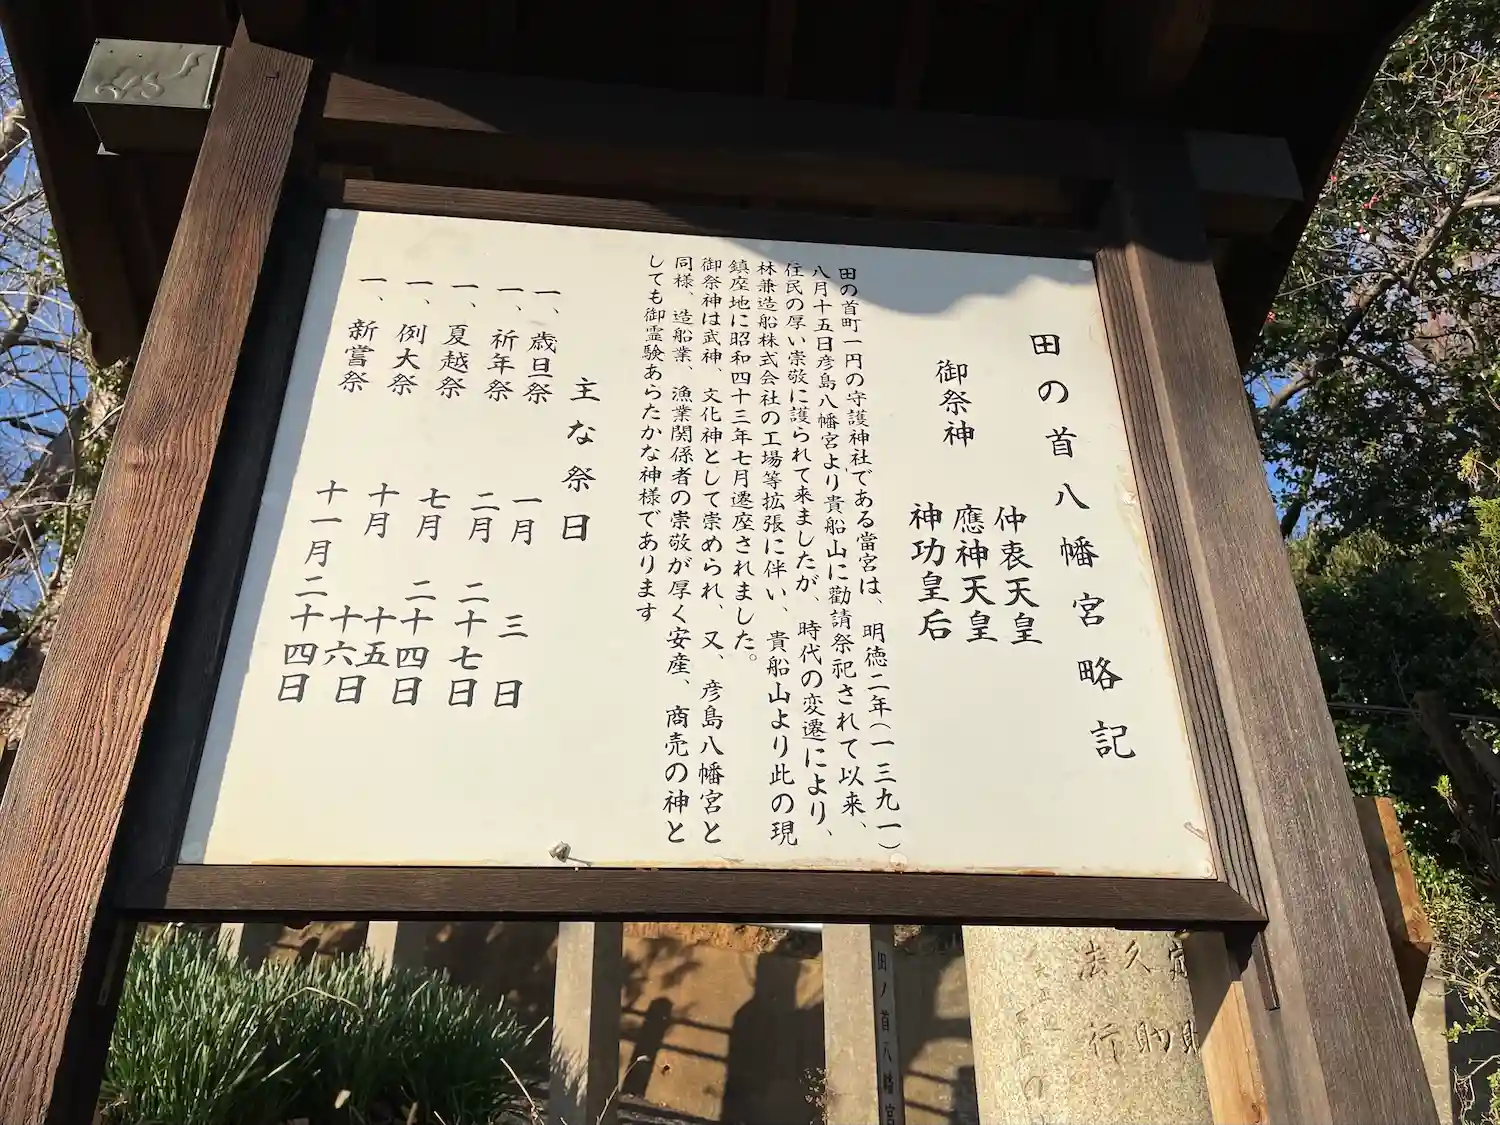 田の首八幡宮略記
御祭神
仲哀天皇
應神天皇
神功皇后
田の首町一円の守護神社である當宮は、明徳二年(一三九一)
八月十五日彦島八幡宮より貴船山に勸請祭祀されて以来、
住民の厚い崇敬に護られて来ましたが、時代の変遷により、
林兼造船株式会社の工場等拡張に伴い、貴船山より此の現
鎮座地に昭和四十三年七月遷座されました。
御祭神は武神、文化神として崇められ、又、彦島八幡宮と
同様、造船業、漁業関係者の崇敬が厚く安産、商売の神と
しても御霊験あらたかな神様であります
主な祭日
一、歳旦祭 一月 三日
一、祈年祭 二月 二十七日
一、夏越祭 七月 二十四日
一、例大祭 十月 十五 十六日
一、新嘗祭 十一月二十四日
田ノ首八幡宮